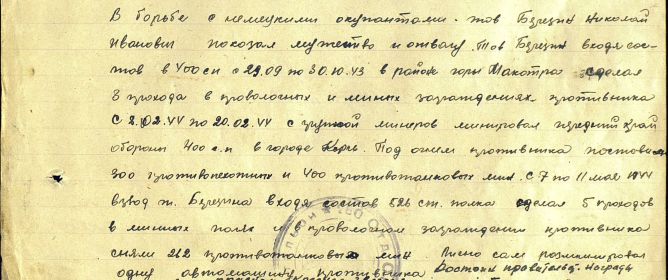 В борьбе с немецкими окупантами. тов Березин Николай
Иванович показал мужество и отвагу. Тов Березин входя сос-
тав в 400 сп с 29.09 по 30.10.43 в районе горы Макотра сделал
8 прохода в проволочных и минных заграждениях противника
С 2.02.44 по 20.02.44 с группой минеров минировал передний край
обороны 400 с.п в городе Керчь. Под огнем противника постови
300 противопехотных и 400 противотанковых мин. С 7 по 11 мая 1944
взвод т. Березина входя состав 526 ст. полка сделал 5 проходов
в минных полях и проволочном заграждении противника
сняли 262 противотанковых мин Лично сам разминировал
одну автомашину противника Достоин правительств. Награды